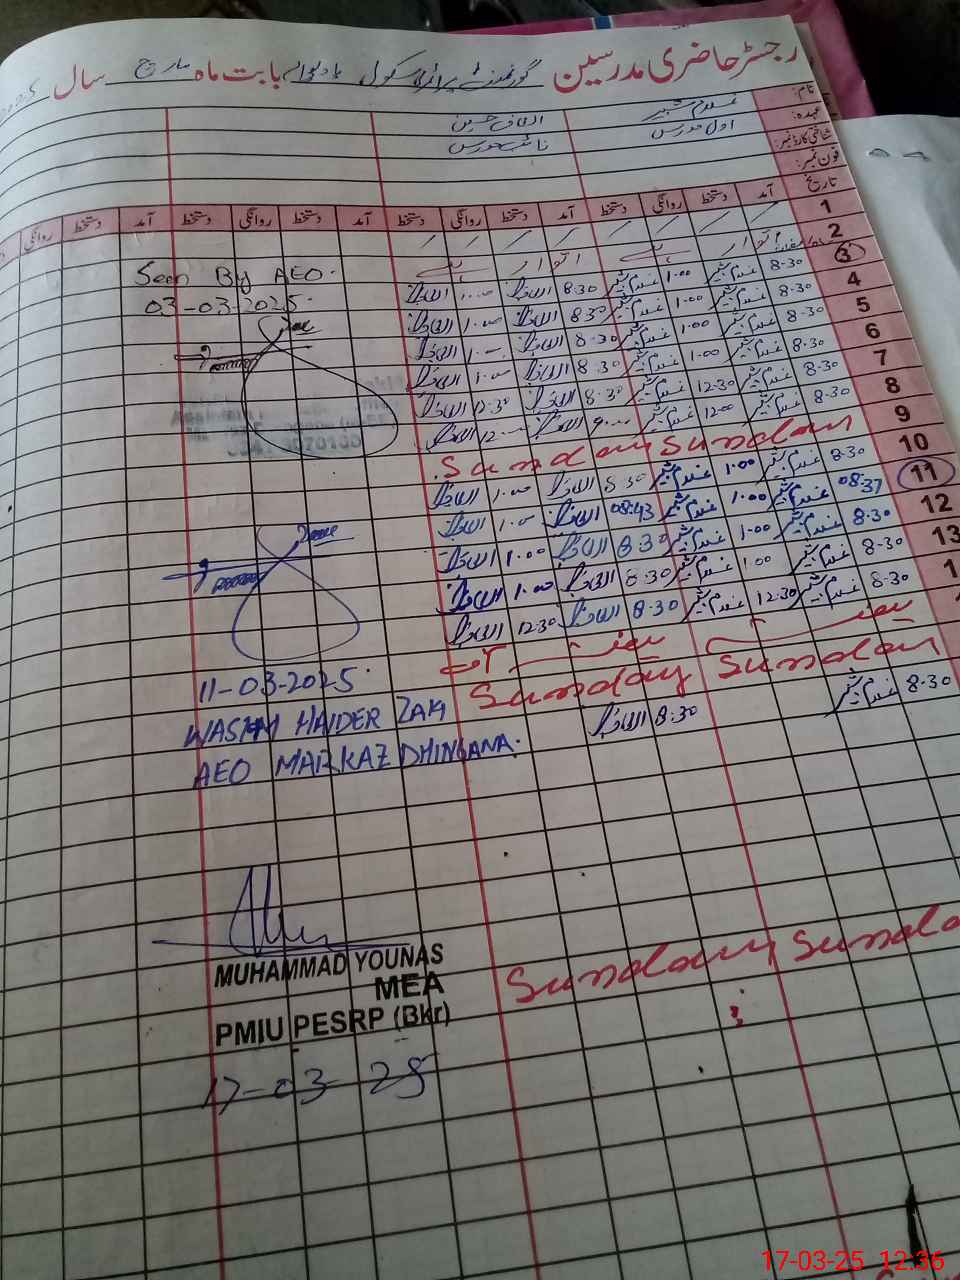 رجسٹر حاضری مدرسین گورنمنٹ پرائمری سکول بابت ماہ مارچ سال
نام: غلام شبیر الطاف حسین
عہدہ: اول مدرس نائب مدرس
شناختی کارڈ نمبر:
فون نمبر:
تاریخ آمد دستخط روانگی دستخط آمد دستخط روانگی دستخط آمد دستخط روانگی دستخط آمد دستخط روانگی
1
2 اتوار اتوار
3 8-30 غلام شبیر 1.00 غلام شبیر 8-30 الطاف 1.00 الطاف
4 8-30 غلام شبیر 1.00 غلام شبیر 8-30 الطاف 1.00 الطاف
5 8-30 غلام شبیر 1.00 غلام شبیر 8-30 الطاف 1.00 الطاف
6 8-30 غلام شبیر 1.00 غلام شبیر 8-30 الطاف 1.00 الطاف
7 8-30 غلام شبیر 12-30 غلام شبیر 8-30 الطاف 12-30 الطاف
8 8-30 غلام شبیر 12.00 غلام شبیر 9.00 الطاف 12.00 الطاف
9 Sunday Sunday
10 8-30 غلام شبیر 1.00 غلام شبیر 8-30 الطاف 1.00 الطاف
11 08:37 غلام شبیر 1.00 غلام شبیر 08:43 الطاف 1.00 الطاف
12 8-30 غلام شبیر 1.00 غلام شبیر 8-30 الطاف 1.00 الطاف
13 8-30 غلام شبیر 1.00 غلام شبیر 8-30 الطاف 1.00 الطاف
8-30 غلام شبیر 12-30 غلام شبیر 8-30 الطاف 12-30 الطاف
Sunday Sunday
8-30 غلام شبیر 8-30 الطاف
Seen By AEO.
03-03-2025.
11-03-2025.
WASIM HAIDER ZAKI
AEO MARKAZ DHINGANA.
Sunday Sunda
MUHAMMAD YOUNAS
MEA
PMIU PESRP (Bkr)
17-03-25
17-03-25 12:36